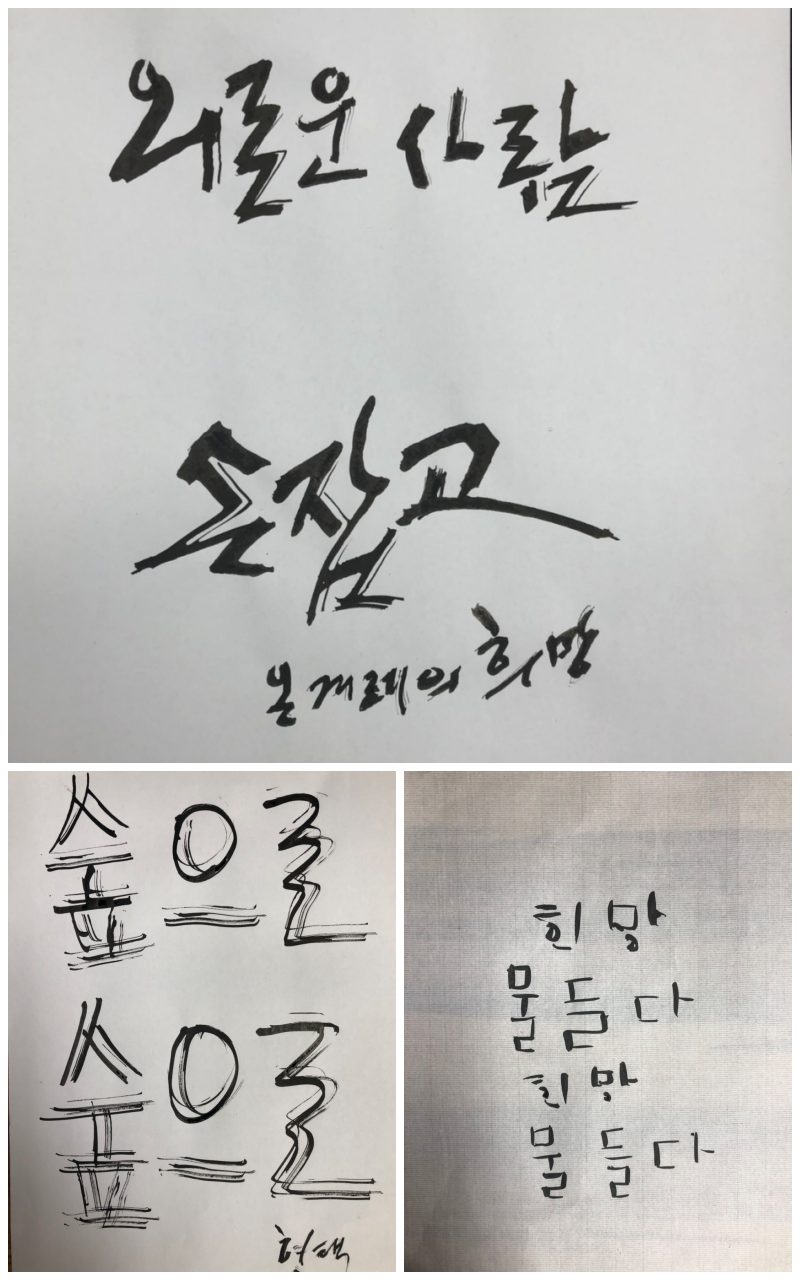 외로운 사람
손잡고
온겨레의 희망
숲으로
숲으로
희망
물들다
희망
물들다